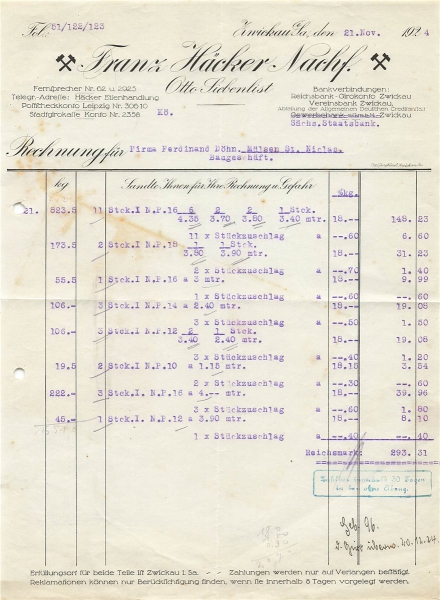 Fol. 61/122/123
Zwickau Sa., den 21.Nov. 1924
Franz Häcker Nachf.
Otto Siebenlist
Fernsprecher Nr. 62 u. 2025
Telegr.-Adresse: Häcker Eisenhandlung
Postscheckkonto Leipzig Nr. 30610
Stadtgirokasse Konto Nr. 2358
Bankverbindungen:
Reichsbank-Girokonto Zwickau
Vereinsbank Zwickau,
Abteilung der Allgemeinen Deutschen Creditanstalt
Gewerbebank Zwickau
Sächs.Staatsbank.
Kö.
Rechnung für Firma Ferdinand Döhn, Mülsen St. Niclas.
Baugeschäft.
kg Sandte Ihnen für Ihre Rechnung u. Gefahr %kg.
21. 823.5 11 Stck.I N.P.16 6 2 2 1 Stck.
4.35 3.70 3.50 3.40 mtr. 18.-- 148. 23
11 x Stückzuschlag a --.60 6. 60
173.5 2 Stck.I N.P.18 1 1 Stck.
3.80 3.90 mtr. 18.-- 31. 23
2 x Stückzuschlag a --.70 1. 40
55.5 1 Stck.I N.P.16 a 3 mtr. 18.-- 9. 99
1 x Stückzuschlag a --.-- --. 60
106.-- 3 Stck.I N.P.14 a 2.40 mtr. 18.-- 19. 08
3 x Stückzuschlag a --.50 1. 50
106.-- 3 Stck.I N.P.12 2 1 Stck.
3.40 2.40 mtr. 18.-- 19. 08
3 x Stückzuschlag a --.40 1. 20
19.5 2 Stck.I N.P.10 a 1.15 mtr. 18.15 3. 54
2 x Stückzuschlag a --.30 --. 60
222.-- 3 Stck.I N.P.16 a 4.-- mtr. 18.-- 39. 96
3 x Stückzuschlag a --.60 1. 80
45.-- 1 Stck.I N.P.12 a 3.90 mtr. 18.-- 8. 10
1 x Stückzuschlag a --.40 --. 40
Reichsmark: 293. 31
innerhalb 30 Tagen
ohne Abzug.
20.12.24.
Erfüllungsort für beide Teile ist Zwickau i. Sa. Zahlungen werden nur auf Verlangen bestätigt.
Reklamationen können nur Berücksichtigung finden, wenn sie innerhalb 8 Tagen vorgelegt werden.